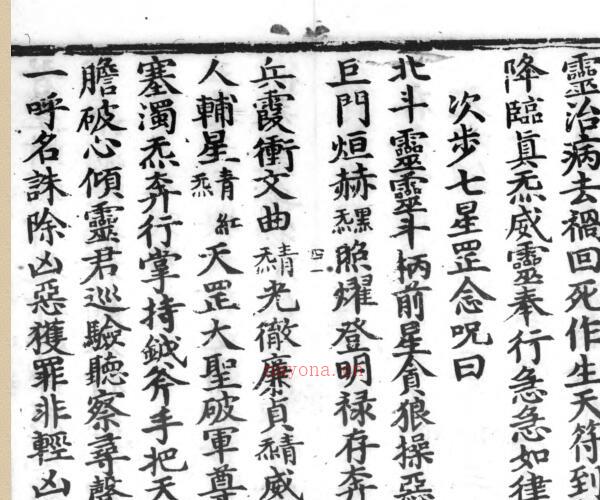 靈治病去禍回死作生天符到
降臨真炁威靈奉行急急如律
次步七星罡念咒曰
北斗靈靈斗柄前星貪狼操惡
巨門烜赫黑炁照燿登明祿存奔
四一
兵霞衝文曲青炁光徹廉貞青炁威
人輔星青炁紅天罡大聖破軍尊
塞濁炁奔行掌持鉞斧手把天
膽破心傾靈君巡驗聽察尋聲
一呼名誅除凶惡獲罪非輕凶